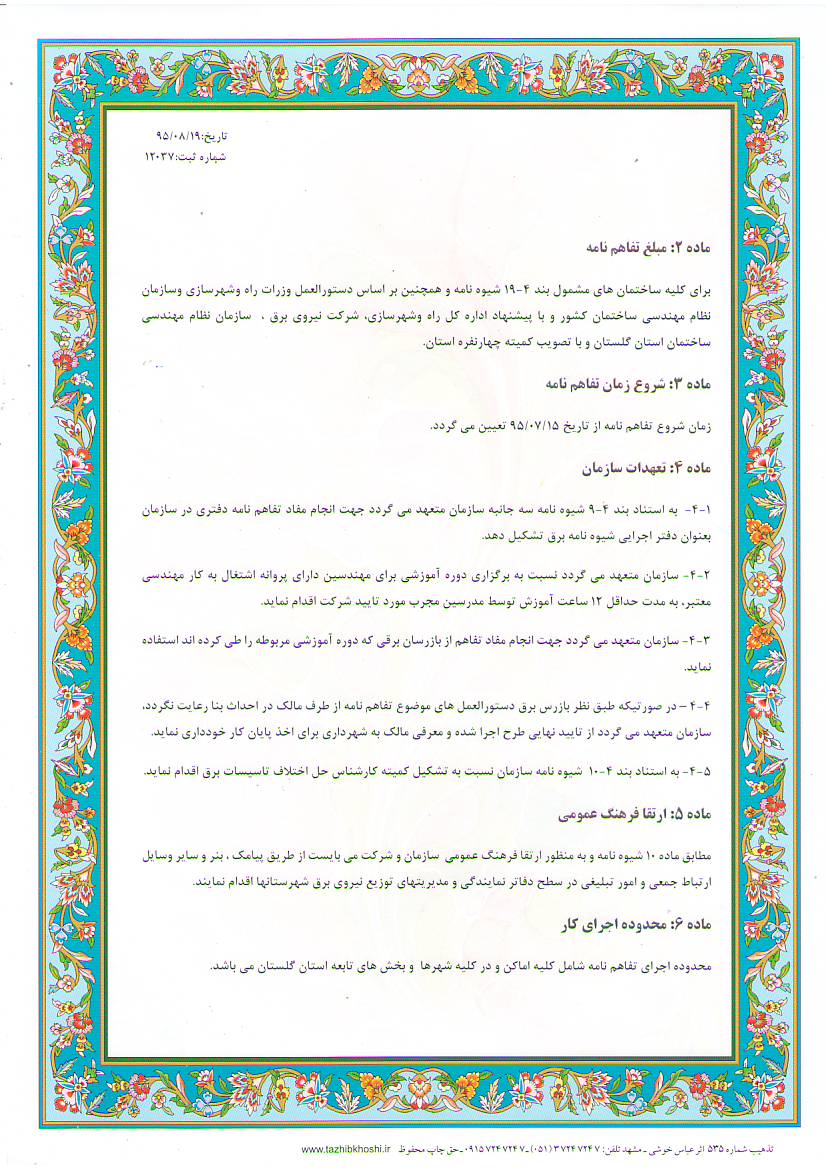 تاریخ:۹۵/۰۸/۱۹
شماره ثبت:۱۲۰۳۷
ماده ۲: مبلغ تفاهم نامه
برای کلیه ساختمان های مشمول بند ۴-۱۹ شیوه نامه و همچنین بر اساس دستورالعمل وزرات راه وشهرسازی وسازمان
نظام مهندسی ساختمان کشور و با پیشنهاد اداره کل راه وشهرسازی، شرکت نیروی برق ، سازمان نظام مهندسی
ساختمان استان گلستان و با تصویب کمیته چهارنفره استان.
ماده ۳: شروع زمان تفاهم نامه
زمان شروع تفاهم نامه از تاریخ ۹۵/۰۷/۱۵ تعیین می گردد.
ماده ۴: تعهدات سازمان
۴-۱- به استناد بند ۴-۹ شیوه نامه سه جانبه سازمان متعهد می گردد جهت انجام مفاد تفاهم نامه دفتری در سازمان
بعنوان دفتر اجرایی شیوه نامه برق تشکیل دهد.
۴-۲- سازمان متعهد می گردد نسبت به برگزاری دوره آموزشی برای مهندسین دارای پروانه اشتغال به کار مهندسی
معتبر، به مدت حداقل ۱۲ ساعت آموزش توسط مدرسین مجرب مورد تایید شرکت اقدام نماید.
۴-۳- سازمان متعهد می گردد جهت انجام مفاد تفاهم از بازرسان برقی که دوره آموزشی مربوطه را طی کرده اند استفاده
نماید.
۴-۴ – در صورتیکه طبق نظر بازرس برق دستورالعمل های موضوع تفاهم نامه از طرف مالک در احداث بنا رعایت نگردد،
سازمان متعهد می گردد از تایید نهایی طرح اجرا شده و معرفی مالک به شهرداری برای اخذ پایان کار خودداری نماید.
۴-۵- به استناد بند ۴-۱۰ شیوه نامه سازمان نسبت به تشکیل کمیته کارشناس حل اختلاف تاسیسات برق اقدام نماید.
ماده ۵: ارتقا فرهنگ عمومی
مطابق ماده ۱۰ شیوه نامه و به منظور ارتقا فرهنگ عمومی سازمان و شرکت می بایست از طریق پیامک ، بنر و سایر وسایل
ارتباط جمعی و امور تبلیغی در سطح دفاتر نمایندگی و مدیریتهای توزیع نیروی برق شهرستانها اقدام نمایند.
ماده ۶: محدوده اجرای کار
محدوده اجرای تفاهم نامه شامل کلیه اماکن و در کلیه شهرها و بخش های تابعه استان گلستان می باشد.
تذهیب شماره ۵۳۵ اثر عباس خوشی ـ مشهد تلفن: ۳۷۲۴۷۲۴۷ (۰۵۱) ـ ۰۹۱۵۷۲۴۷۲۴۷ ـ حق چاپ محفوظ www.tazhibkhoshi.ir